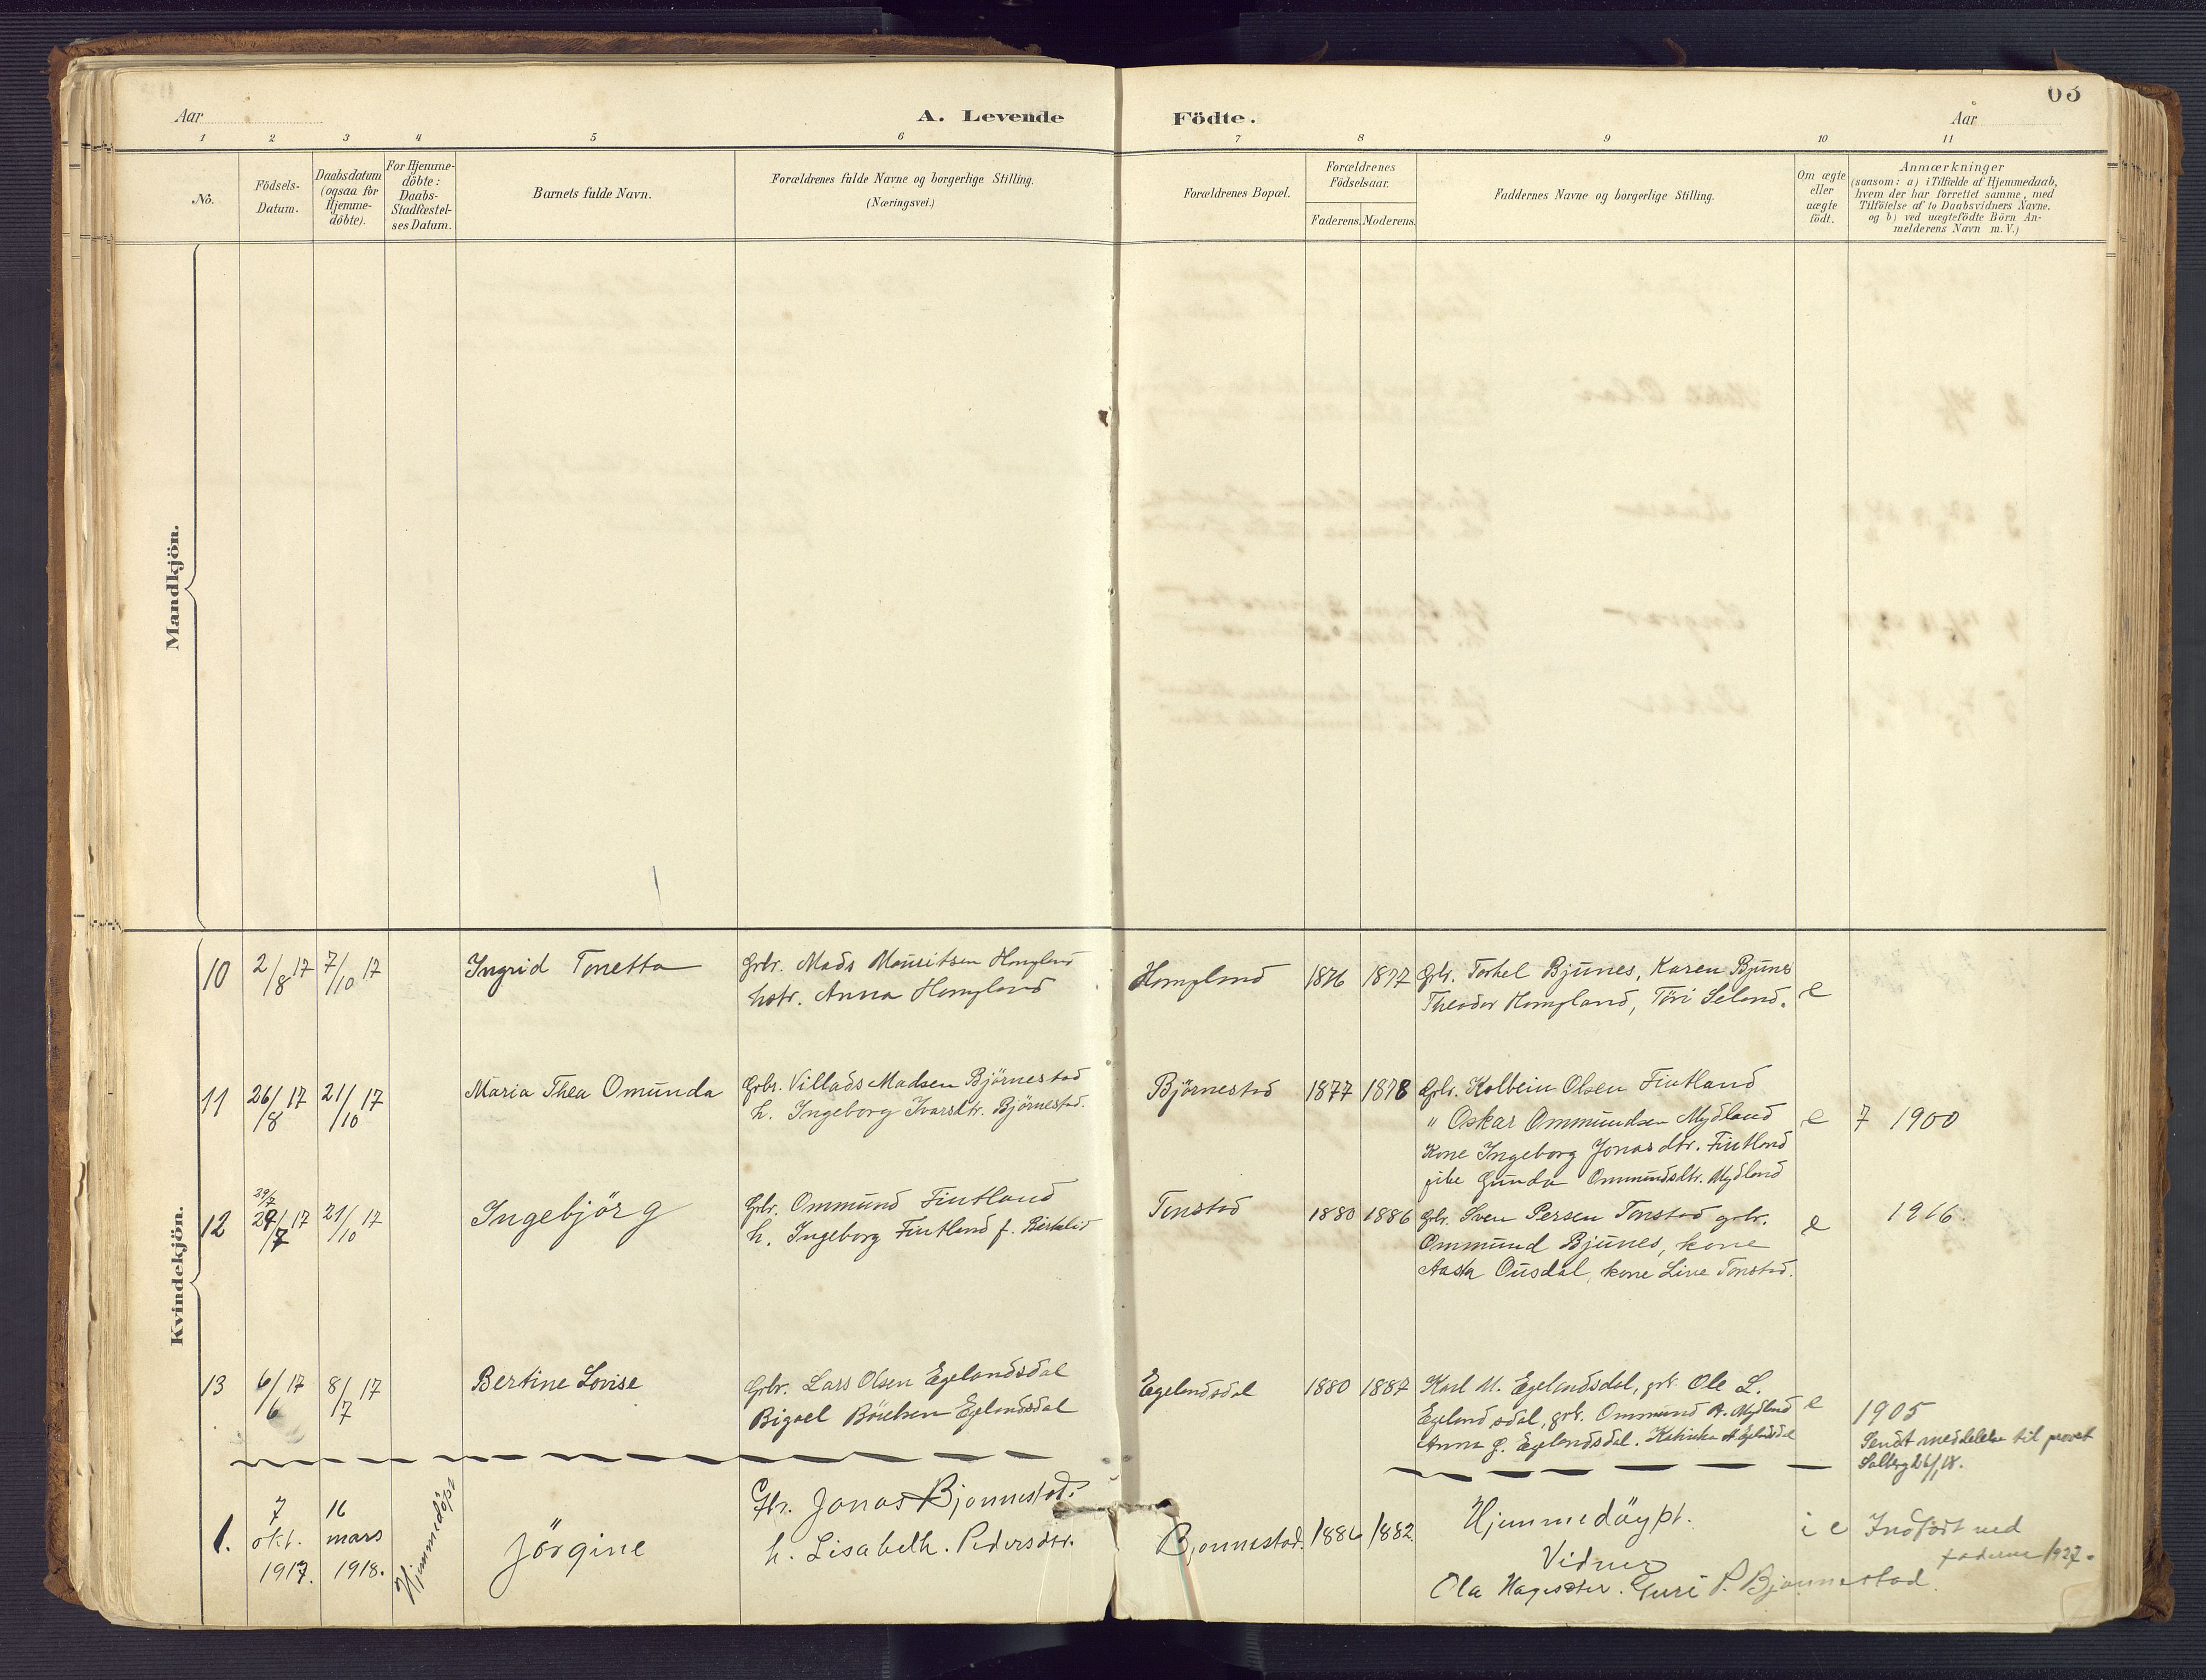 63
Aar
A. Levende Födte.
Aar
1 2 3 4 5 6 7 8 9 10 11
No.
Födsels-
Datum.
Daabsdatum
(ogsaa for
Hjemme-
döbte).
For Hjemme-
döbte:
Daabs-
Stadfæstel-
ses Datum.
Barnets fulde Navn.
Forældrenes fulde Navne og borgerlige Stilling.
(Næringsvei.)
Forældrenes Bopæl.
Forældrenes
Födselsaar.
Faderens.
Moderens.
Faddernes Navne og borgerlige Stilling.
Om ægte
eller
uægte
födt.
Anmærkninger
(saasom: a) i Tilfælde af Hjemmedaab,
hvem der har forrettet samme, med
Tilföielse af to Daabsvidners Navne.
og b) ved uægtefödte Börn An-
melderens Navn m.V.)
Mandkjön.
Kvindekjön.
10
2/8 17
7/10 17
Ingrid Tonetta
Grbr. Mads Mauritsen Hompland
hstr. Anna Hompland
Hompland
1876
1877
Grbr. Torkel Bjunes, Karen Bjunes
Theodor Hompland, Töri Seland.
e
11
26/8 17
21/10 17
Maria Thea Omunda
Grbr. Villads Madsen Björnestad
h. Ingeborg Ivarsdtr. Björnestad.
Björnestad
1877
1878
Grbr. Kolbein Olsen Fintland
" Oskar Ommundsen Mydland
Kone Ingeborg Jonasdtr. Fintland
pike Gunda Ommundsdtr. Mydland
e
7 1900
12
29/7
29/7 17
21/10 17
Ingebjörg
Grbr. Ommund Fintland
h. Ingeborg Fintland f. Birkelid
Tonstad
1880
1886
Grbr. Sven Persen Tonstad grbr.
Ommund Bjunes, kone
Aasta Ousdal, kone Line Tonstad.
e
1916.
13
6/6 17
8/7 17
Bertine Lovise
Grbr. Lars Olsen Egelandsdal
Bigael Egelandsdal
Egelandsdal
1880
1887
Karl M. Egelandsdal, grb. Ole L.
Egelandsdal, grb. Ommund A. Mydland
Anna G. Egelandsdal. Katinka A Egelandsdal
e
1905
Sendt meddelelse til provst
Salberg 26/1 18.
1.
7
okt.
1917.
16
mars
1918.
Hjemmedöpt
Jörgine
Gbr. Jonas Bjonnestad.
h. Lisabeth. Pedersdtr.
Bjonnestad.
1886
1882.
Hjemmedöypt.
Vidner
Ola Hagesæter. Guri P. Bjonnestad.
i e
Indfört ved
faderen 1927.